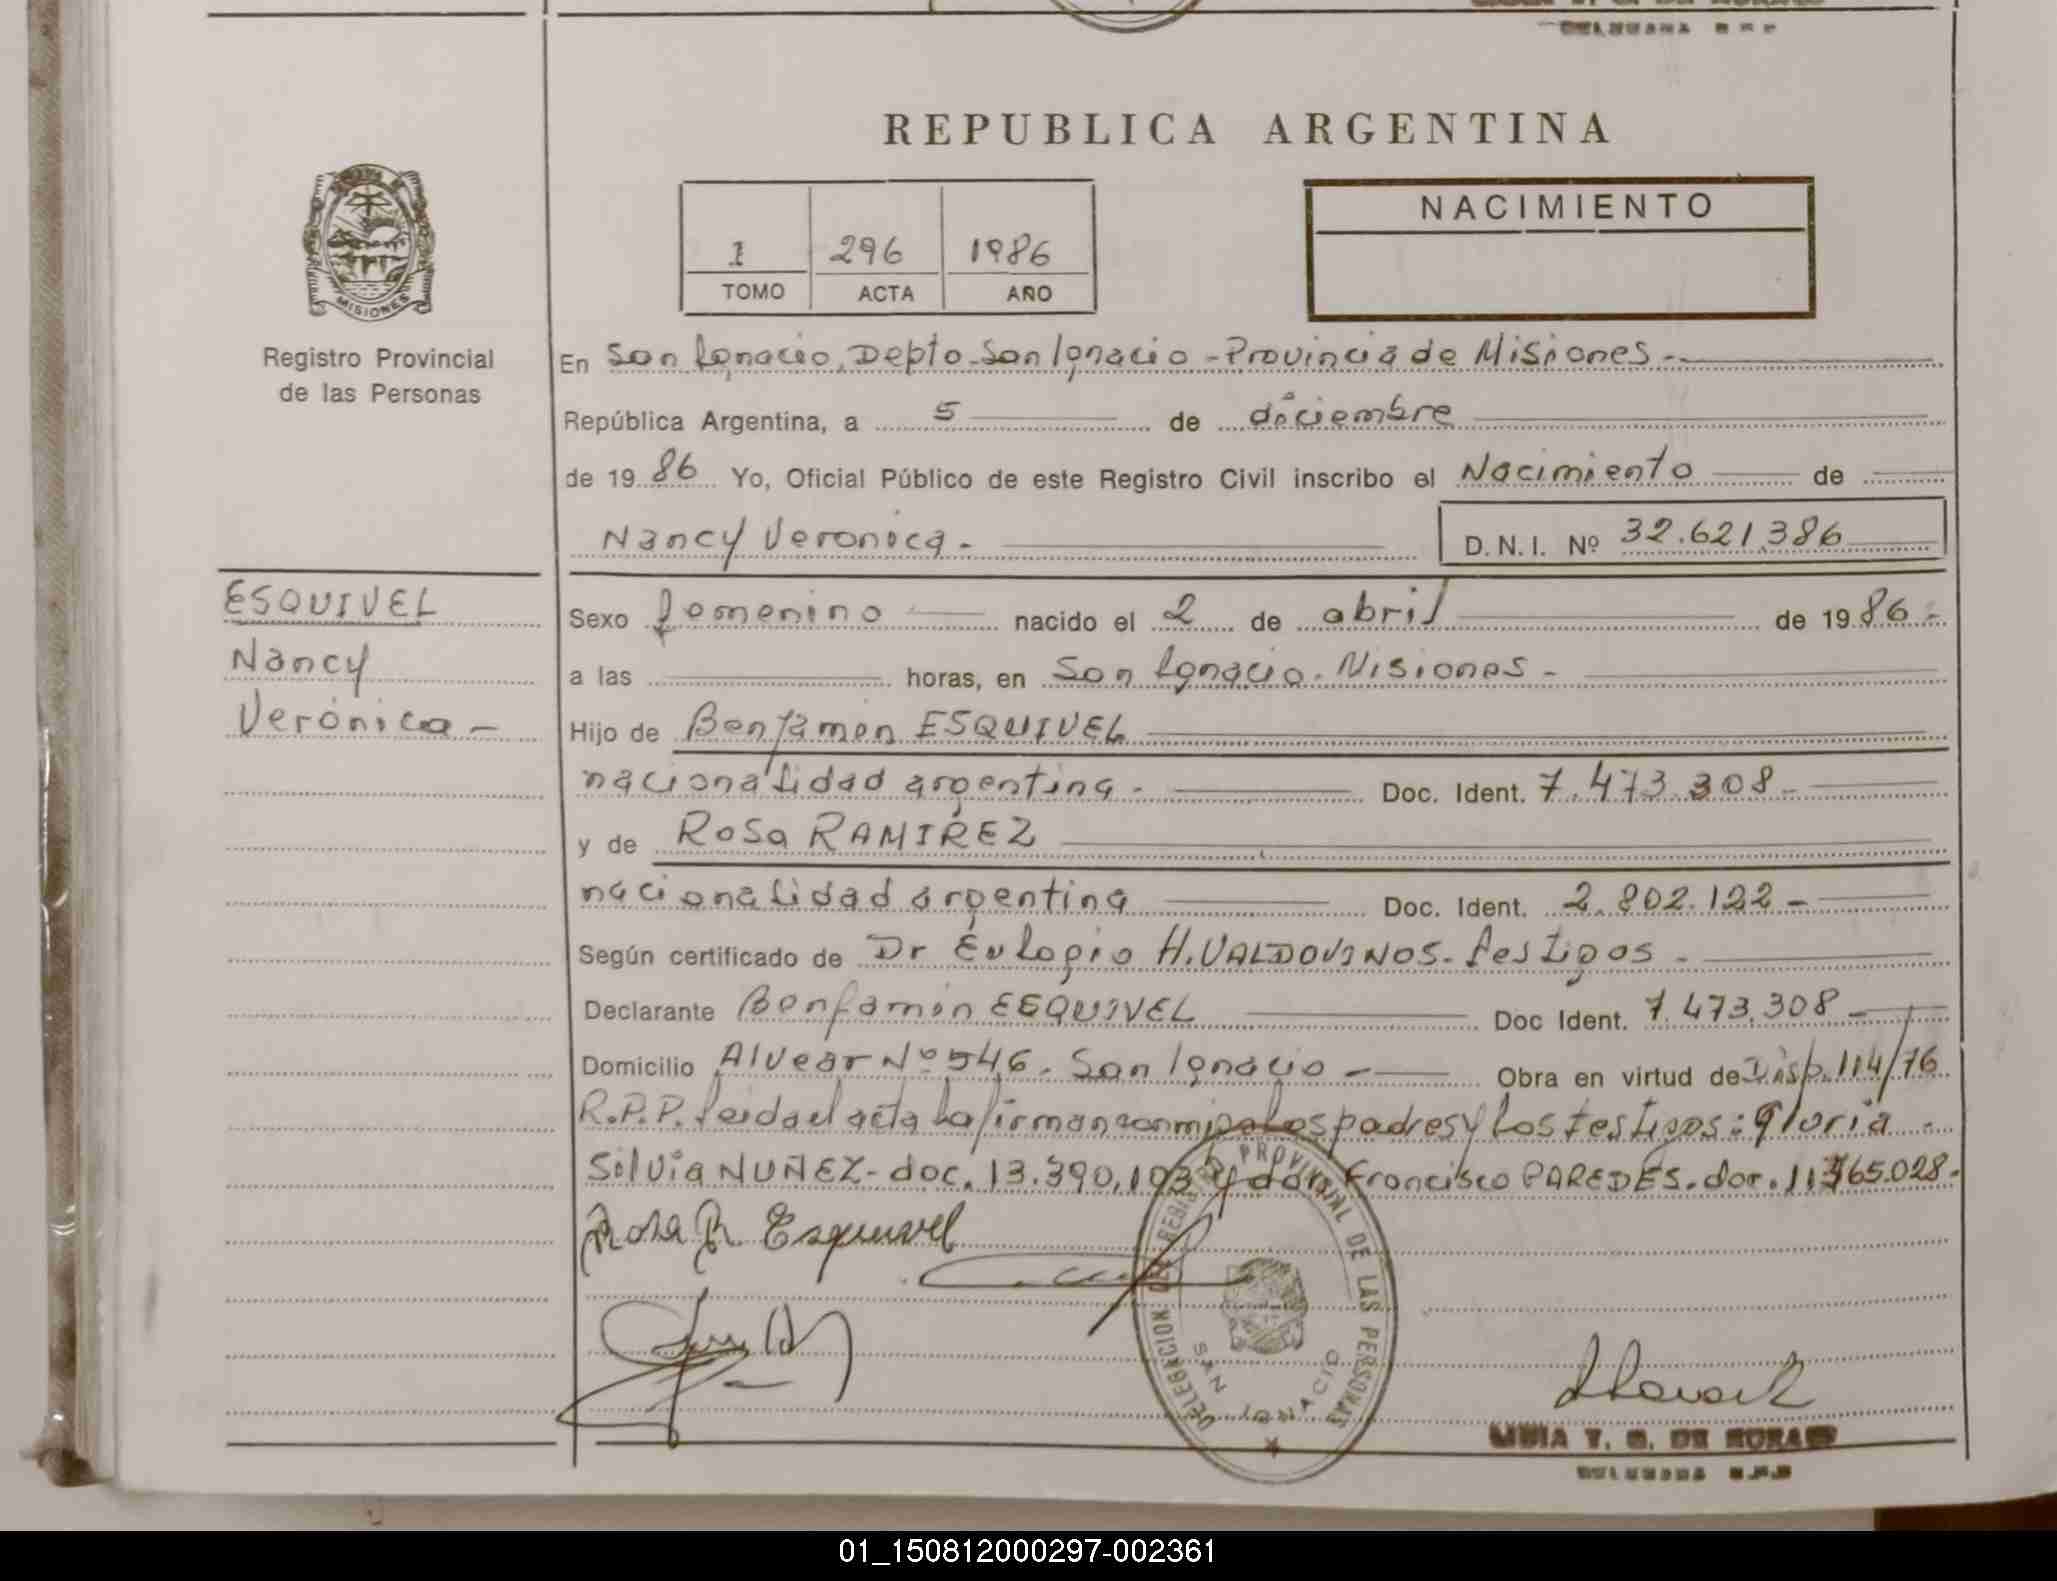 REPUBLICA ARGENTINA
MISIONES
Registro Provincial
de las Personas
1 296 1986
TOMO ACTA AÑO
NACIMIENTO
En San Ignacio, Depto. San Ignacio - Provincia de Misiones -
República Argentina, a 5 de diciembre
de 1986 Yo, Oficial Público de este Registro Civil inscribo el Nacimiento de
Nancy Veronica - D.N.I. Nº 32.621.386
ESQUIVEL
Nancy
Verónica -
Sexo femenino nacido el 2 de abril de 1986 -
a las horas, en San Ignacio. Misiones -
Hijo de Benjamin ESQUIVEL
nacionalidad argentina - Doc. Ident. 7.473.308 -
y de Rosa RAMIREZ
nacionalidad argentina Doc. Ident. 2.802.122 -
Según certificado de Dr Eulogio H. VALDOVINOS - testigos -
Declarante Benjamin ESQUIVEL Doc Ident. 7.473.308 -
Domicilio Alvear Nº 546. San Ignacio - Obra en virtud de Disp. 114/76
R.P.P. leida el acta la firman conmigo los padres y los testigos: Gloria -
Silvia NUÑEZ - doc. 13.390.193 y don Francisco PAREDES. doc. 11.365.028 -
Rosa R Esquivel
DELEGACION DEL REGISTRO PROVINCIAL DE LAS PERSONAS
SAN IGNACIO
DE
01_150812000297-002361